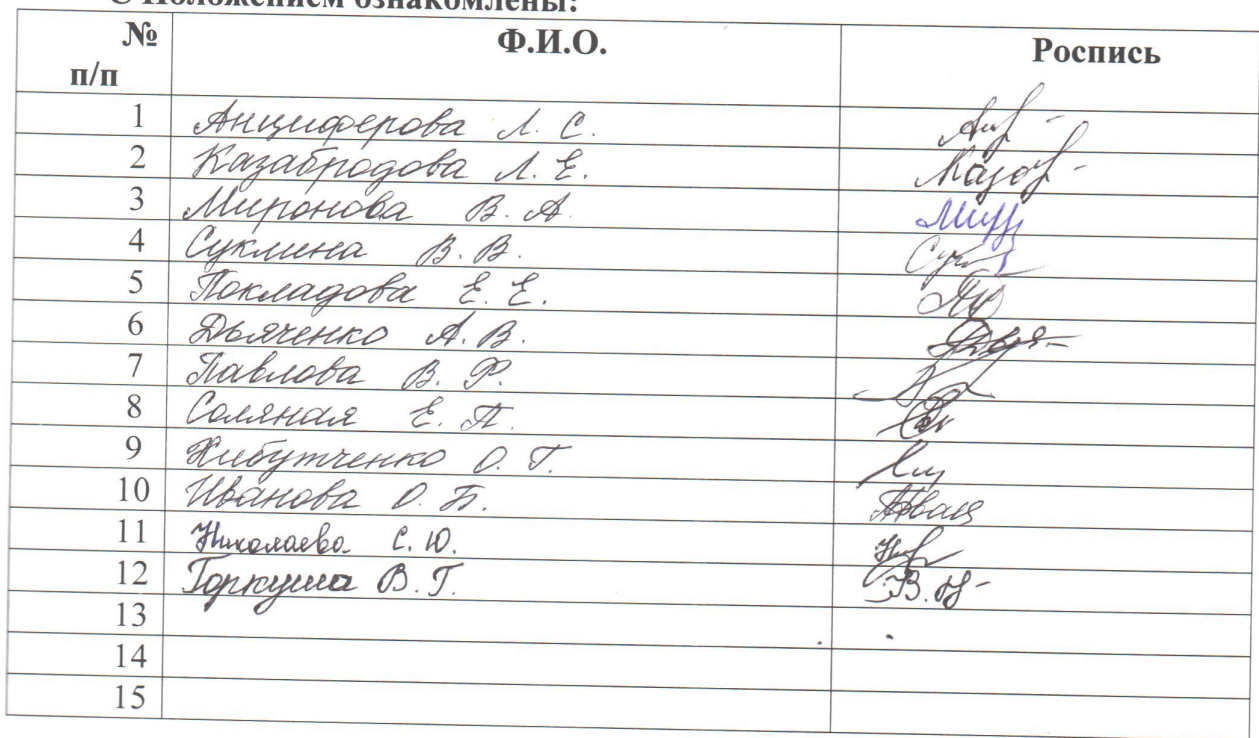 С Положением ознакомлены:
№ п/п Ф.И.О. Роспись
1 Анциферова Л. С.
2 Казабродова Л. Е.
3 Миронова В. А.
4 Суклина В. В.
5 Покладова Е. Е.
6 Дьяченко А. В.
7 Павлова В. Р.
8 Соляная Е. П.
9 Хибутченко О. Г.
10 Иванова О. Б.
11 Николаева С. Ю.
12 Горкуша В. Г.
13
14
15